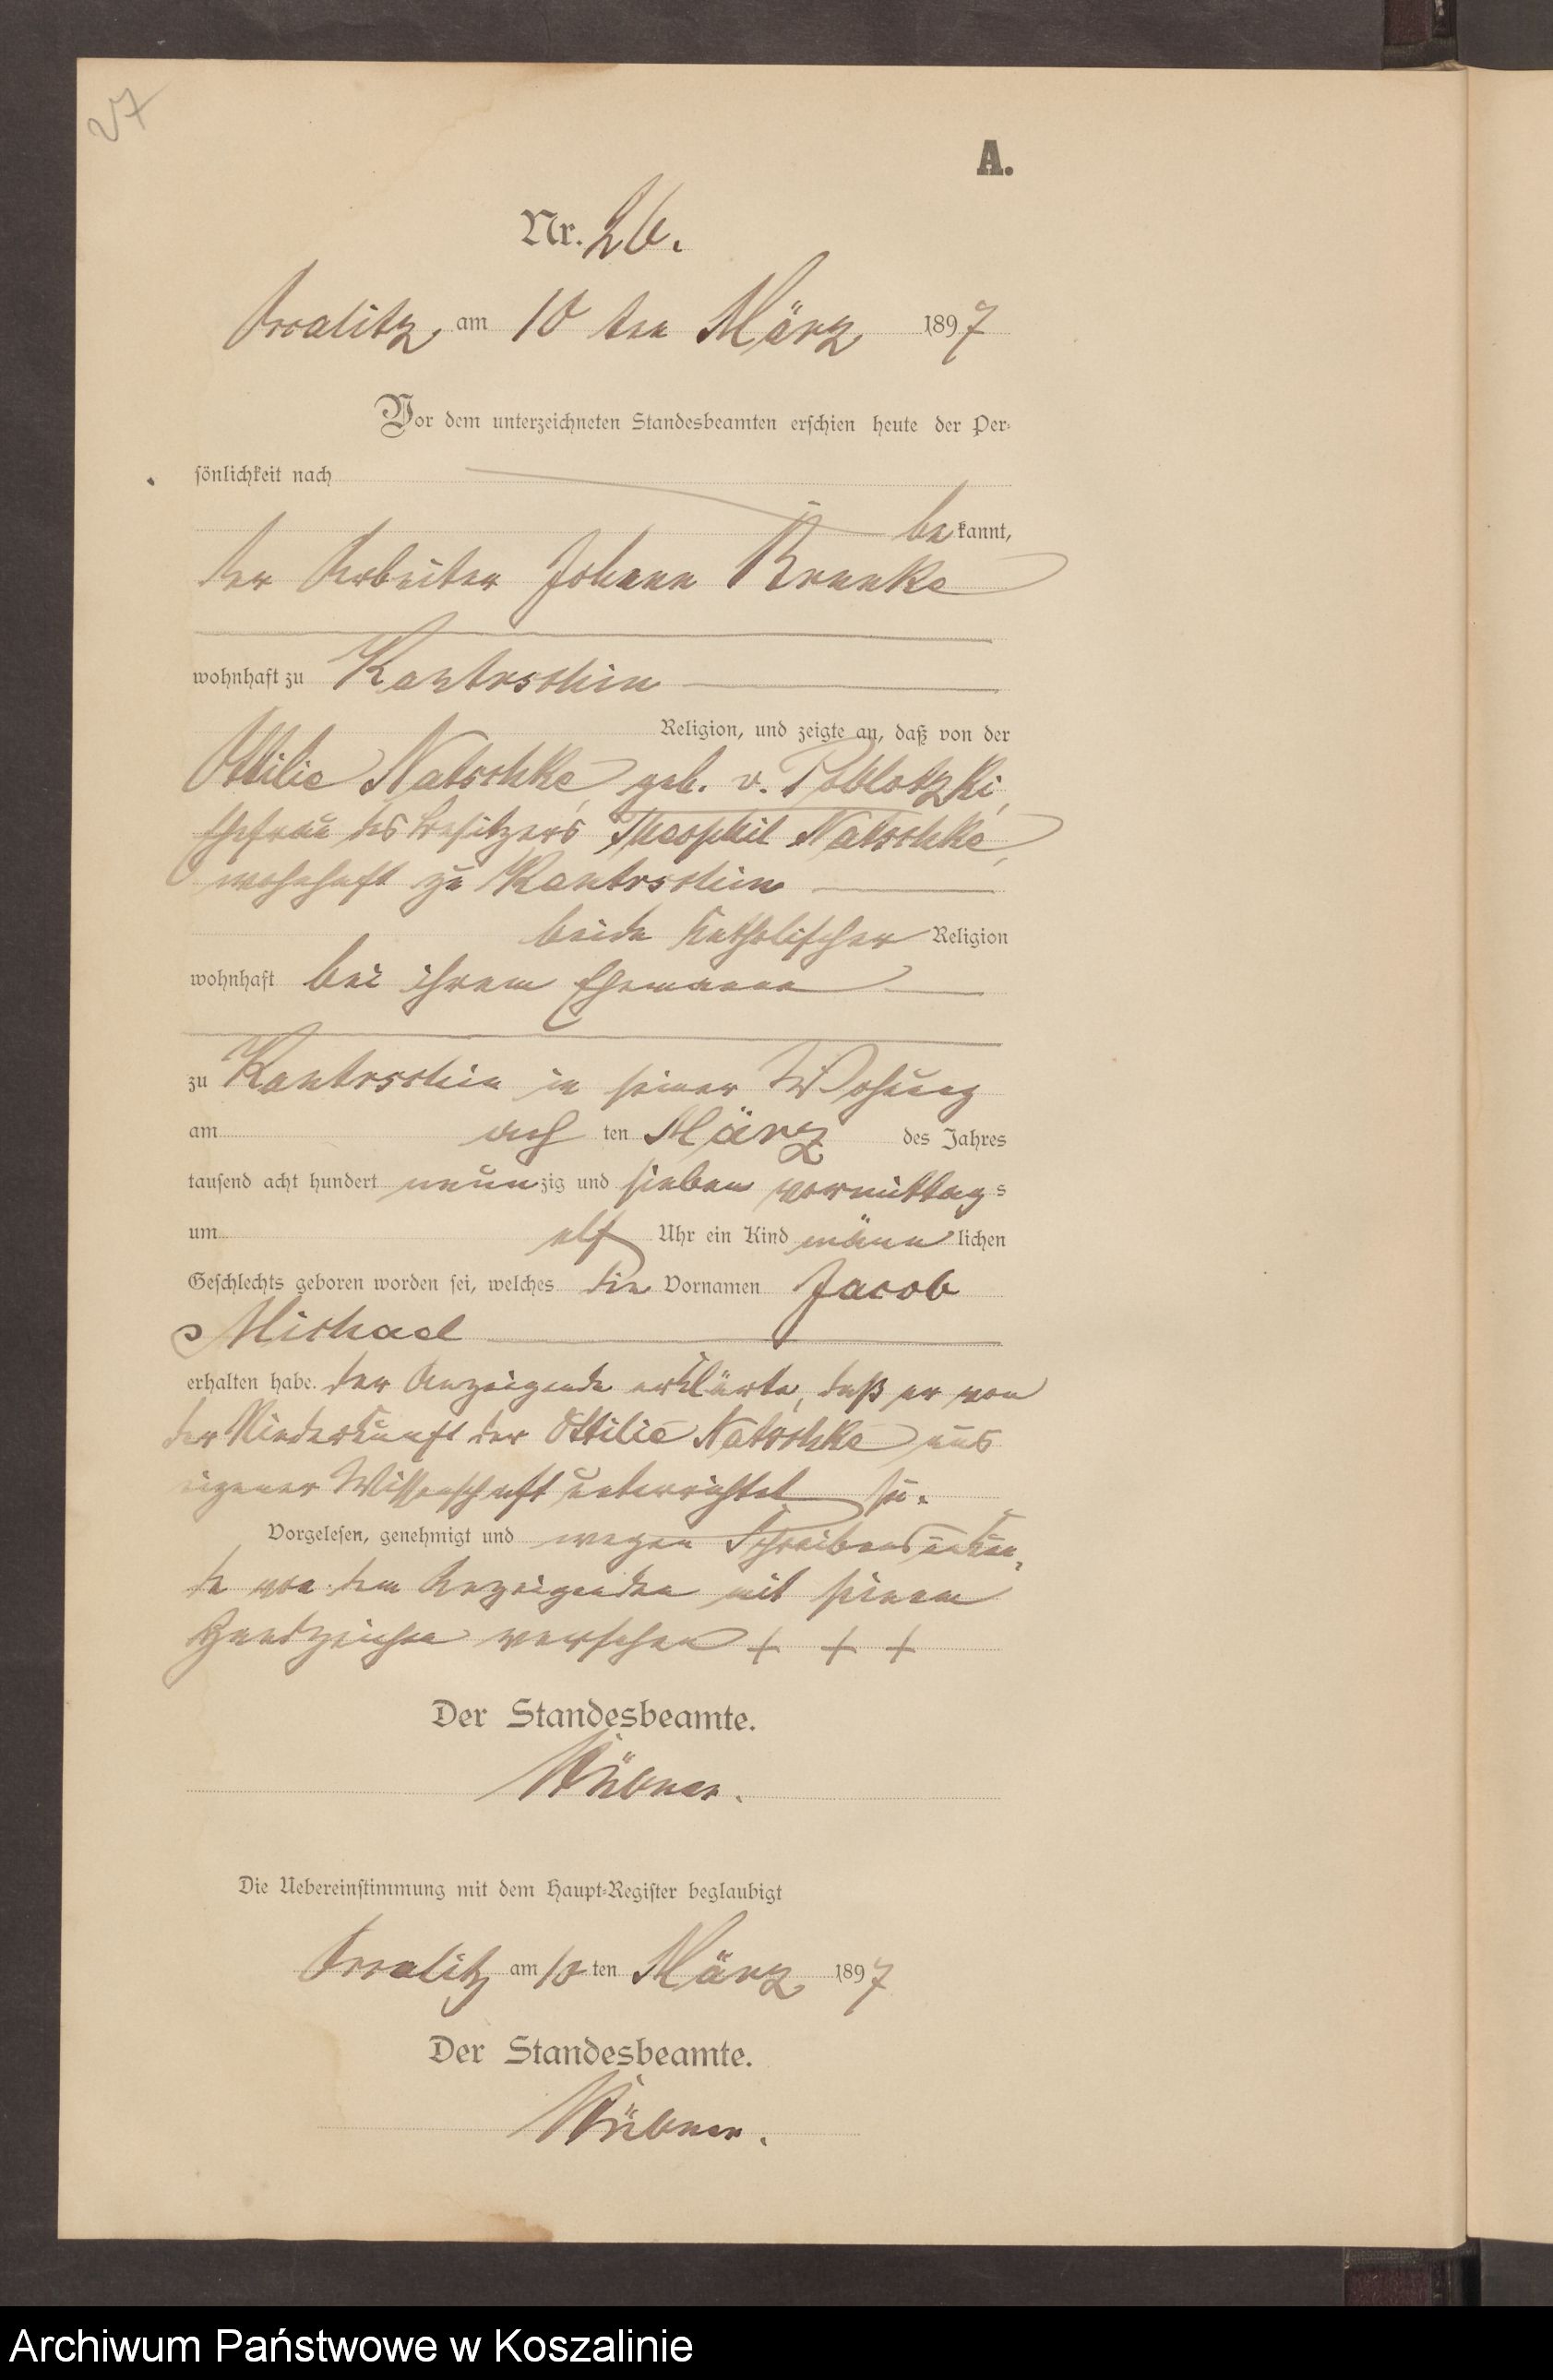 27
A.
Nr. 26.
am 10 ten März 1897
Vor dem unterzeichneten Standesbeamten erschien heute der Per-
sönlichkeit nach
bekannt,
der Arbeiter Johann
wohnhaft zu Kantrschin
Religion, und zeigte an, daß von der
Ottilie Natschke geb. v.
Ehefrau des Besitzers Theophil Natschke,
wohnhaft zu Kantrschin
beide katholischer Religion
wohnhaft bei ihrem Ehemann
zu Kantrschin in seiner Wohung
am ach ten März des Jahres
tausend acht hundert neunzig und sieben vormittags
um elf Uhr ein Kind männlichen
Geschlechts geboren worden sei, welches die Vornamen Jacob
Michael
erhalten habe. der Anzeigende erklärte, daß er von
der Niederkunft der Ottilie Natschke aus
eigener Wissenschaft unterrichtet sei.
Vorgelesen, genehmigt und wegen Schreibensunkun-
de von dem Anzeigenden mit seinem
Handzeichen versehen + + +
Der Standesbeamte.
Die Uebereinstimmung mit dem Haupt-Register beglaubigt
am 10 ten März 1897
Der Standesbeamte.
Archiwum Państwowe w Koszalinie